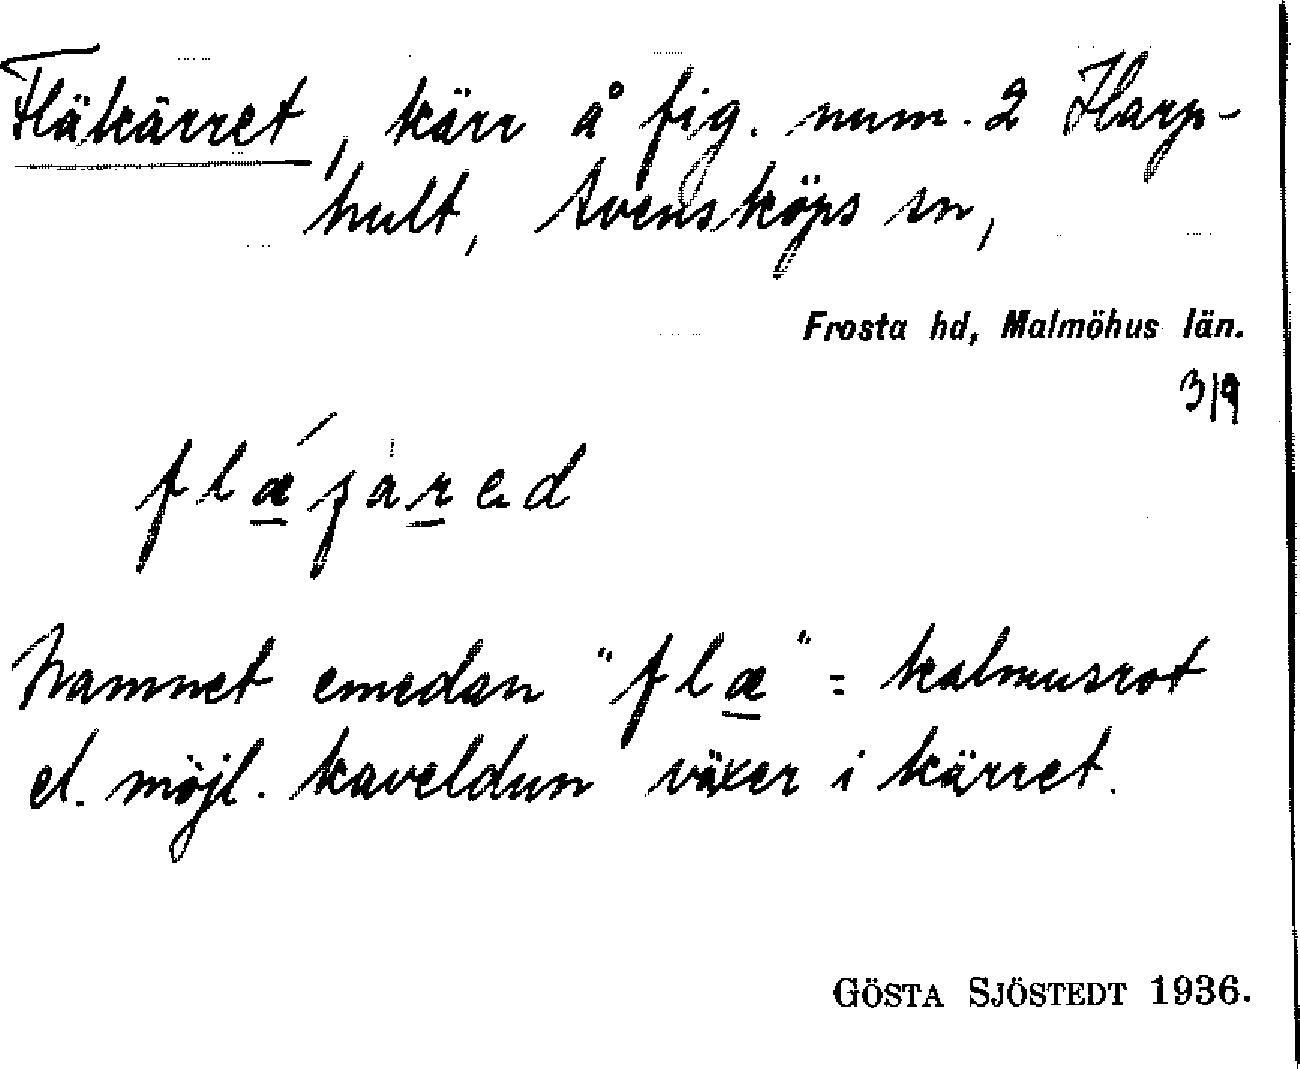 Fläkärret, kärr å fig. num. 2 Harp-
hult, Svensköps sn,
Frosta hd, Malmöhus län.
3/9
flæ´ʒàred
Namnet emedan "flæ" = kalmusrot
el. möjl. kaveldun växer i kärret.
GÖSTA SJÖSTEDT 1936.